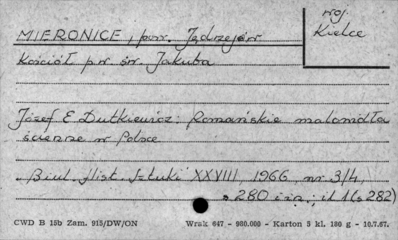 MIERONICE, pow. Jędrzejów
woj.
Kielce
Kościół pw św. Jakuba
Józef E. Dutkiewicz: Romańskie malowidła
ścienne w Polsce
Biul. Hist. Sztuki XXVIII, 1966, nr 3/4,
s 280 i in.; il 1 (s 282)
CWD B 15b Zam. 915/DW/ON Wrak 647 - 950.000 - Karton 3 kl. 180 g - 10.7.67.